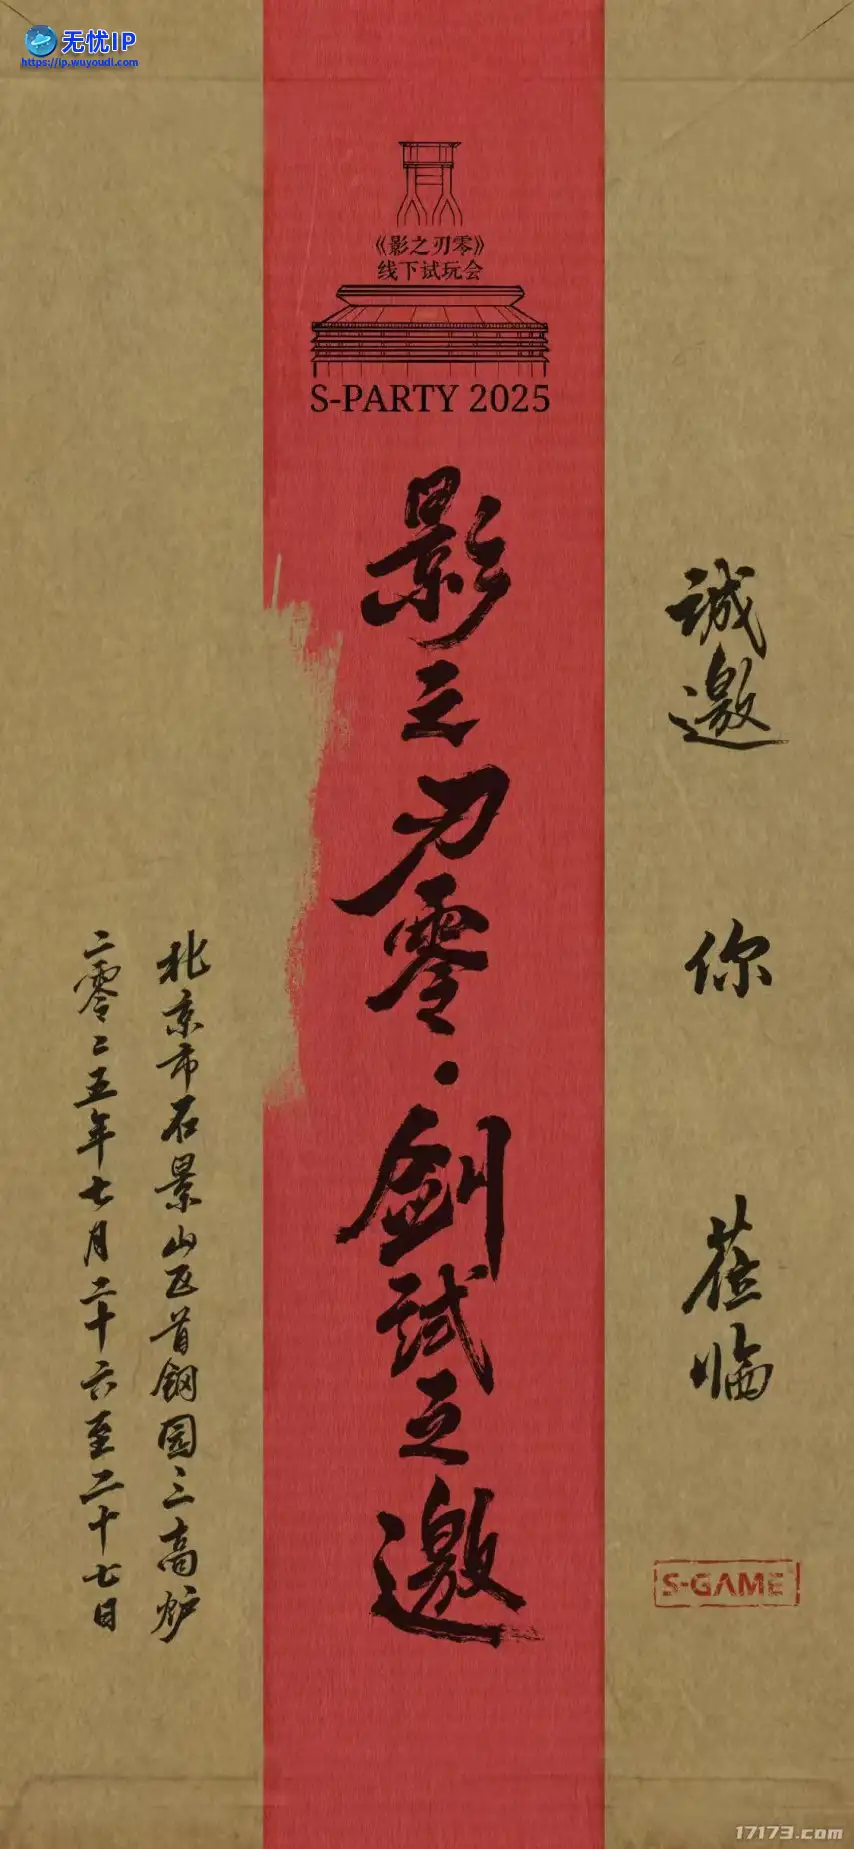 无忧IP
https://ip.wuyoudl.com
《影之刃零》
线下试玩会
S-PARTY 2025
影之刃零·劍試之邀
誠邀
你
莅临
北京市石景山区首钢园三高炉
二零二五年七月二十六至二十七日
S-GAME
17173.com